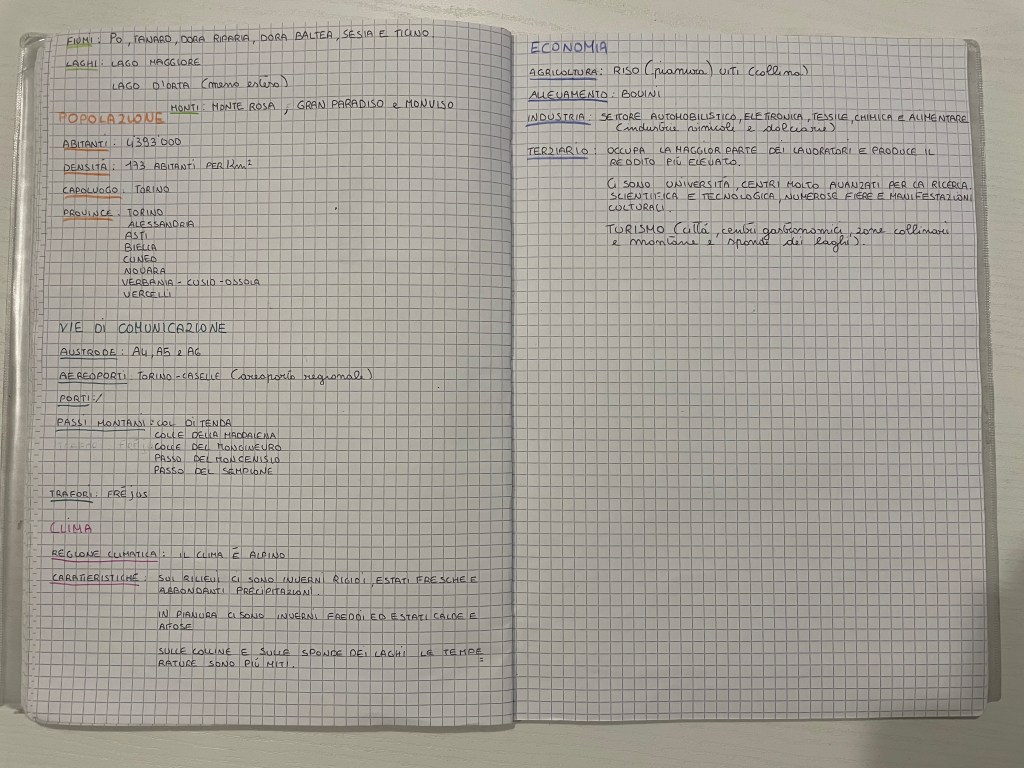 FIUMI: PO, TANARO, DORA RIPARIA, DORA BALTEA, SESIA E TICINO.
LAGHI: LAGO MAGGIORE
LAGO D'ORTA (meno esteso)
MONTI: MONTE ROSA, GRAN PARADISO e MONVISO
POPOLAZIONE
ABITANTI: 4393'000
DENSITÁ: 173 ABITANTI PER Km²
CAPOLUOGO: TORINO
PROVINCE: TORINO
ALESSANDRIA
ASTI
BIELLA
CUNEO
NOVARA
VERBANIA-CUSIO-OSSOLA
VERCELLI
VIE DI COMUNICAZIONE
AUSTRODE: A4, A5 e A6
AEREOPORTI: TORINO-CASELLE (areoporto regionale)
PORTI: /
PASSI MONTANI: COL DI TENDA
COLLE DELLA MADDALENA
COLLE DEL MONGINEURO
PASSO DEL MONCENISIO
PASSO DEL SEMPIONE
TRAFORI: FRÉJUS
CLIMA
REGIONE CLIMATICA: IL CLIMA É ALPINO
CARATTERISTICHE: SUI RILIEVI CI SONO INVERNI RIGIDI, ESTATI FRESCHE E
ABBONDANTI PRECIPITAZIONI.
IN PIANURA CI SONO INVERNI FREDDI ED ESTATI CALDE E
AFOSE
SULLE COLLINE E SULLE SPONDE DEI LAGHI LE TEMPE
RATURE SONO PIÚ MITI.
ECONOMIA
AGRICOLTURA: RISO (pianura) VITI (collina)
ALLEVAMENTO: BOVINI
INDUSTRIA: SETTORE AUTOMOBILISTICO, ELETTRONICA, TESSILE, CHIMICA E ALIMENTARE
(industrie vinicole e dolciarie)
TERZIARIO: OCCUPA LA MAGGIOR PARTE DEI LAVORATORI E PRODUCE IL
REDDITO PIÚ ELEVATO.
CI SONO UNIVERSITÁ, CENTRI MOLTO AVANZATI PER LA RICERCA
SCIENTIFICA E TECNOLOGICA, NUMEROSE FIERE E MANIFESTAZIONI
CULTURALI.
TURISMO (cittá, centri gastronomici, zone collinari
e montane e sponde dei laghi).